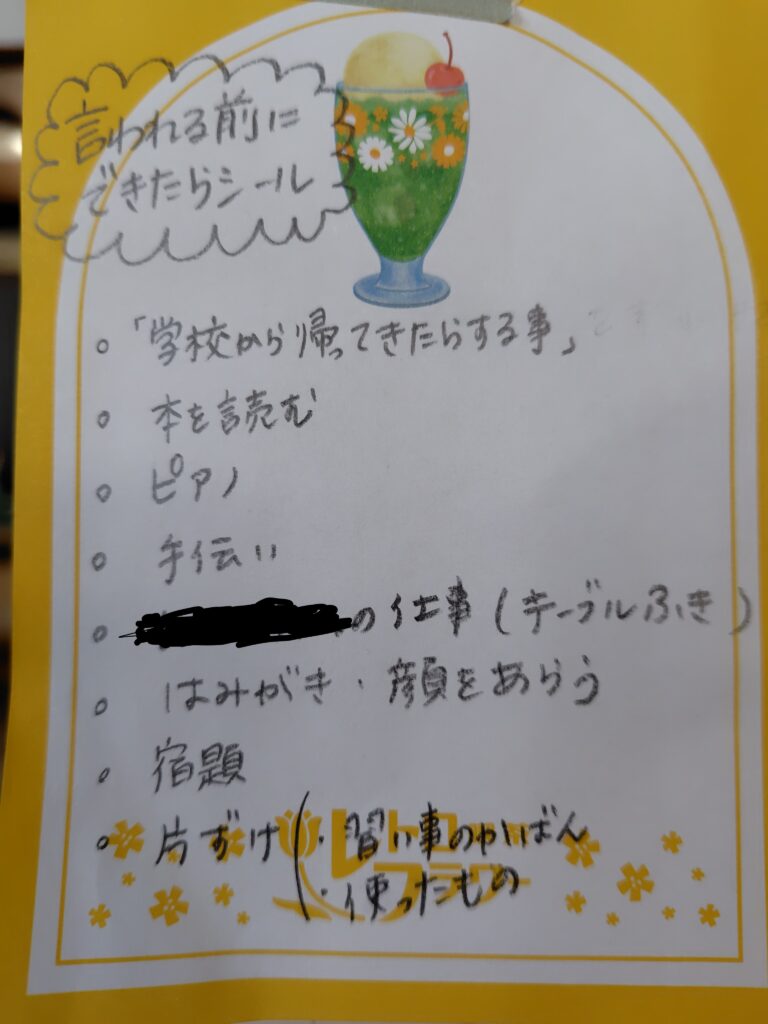 言われる前に
できたらシール
。「学校から帰ってきたらする事」
。本を読む
。ピアノ
。手伝い
。の仕事(テーブルふき)
。はみがき・顔をあらう
。宿題
。片ずけ(・習い事のかばん
・使ったもの
レトロ
フラワー